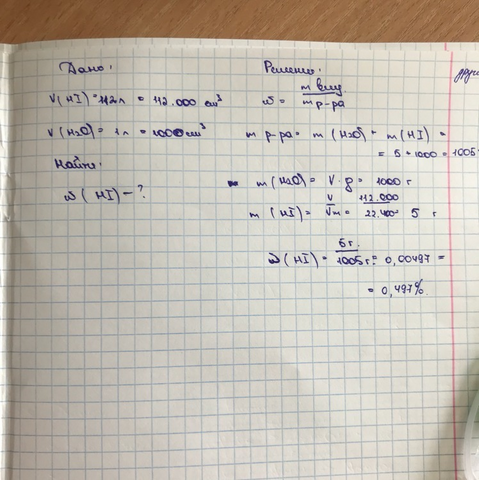 Дано:
V(HI) = 112 л = 112.000 см³
V(H2O) = 1 л = 1000 см³
Найти:
ω (HI) - ?
Решение:
ω = m вещ. / m р-ра
m р-ра = m (H2O) + m (HI) =
= 5 + 1000 = 1005
m (H2O) = V · g = 1000 г
m (HI) = V / Vm = 112.000 / 22.400 = 5 г
ω (HI) = 5 г. / 1005 г. = 0,00497 =
= 0,497%.